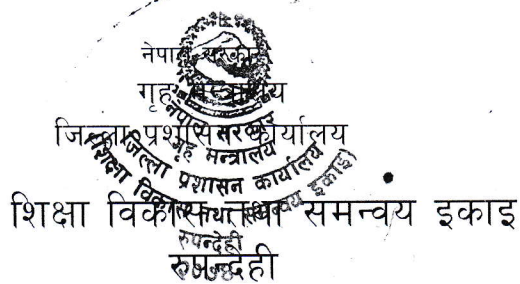 नेपाल सरकार
गृह मन्त्रालय
जिल्ला प्रशासन कार्यालय
शिक्षा विकास तथा समन्वय इकाइ
रुपन्देही
नेपाल सरकार
गृह मन्त्रालय
जिल्ला प्रशासन कार्यालय
(शिक्षा विकास तथा समन्वय इकाइ)
रुपन्देही